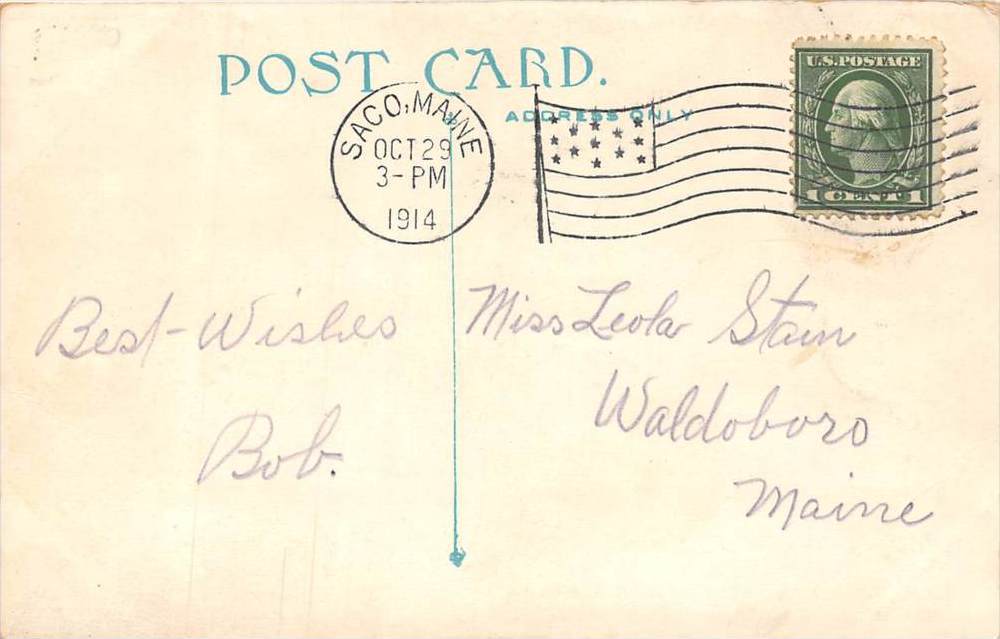 POST CARD.
ADDRESS ONLY
SACO, MAINE
OCT 29
3-PM
1914
U.S. POSTAGE
1 CENT 1
Best-Wishes
Bob.
Miss Leola Stain
Waldoboro
Maine